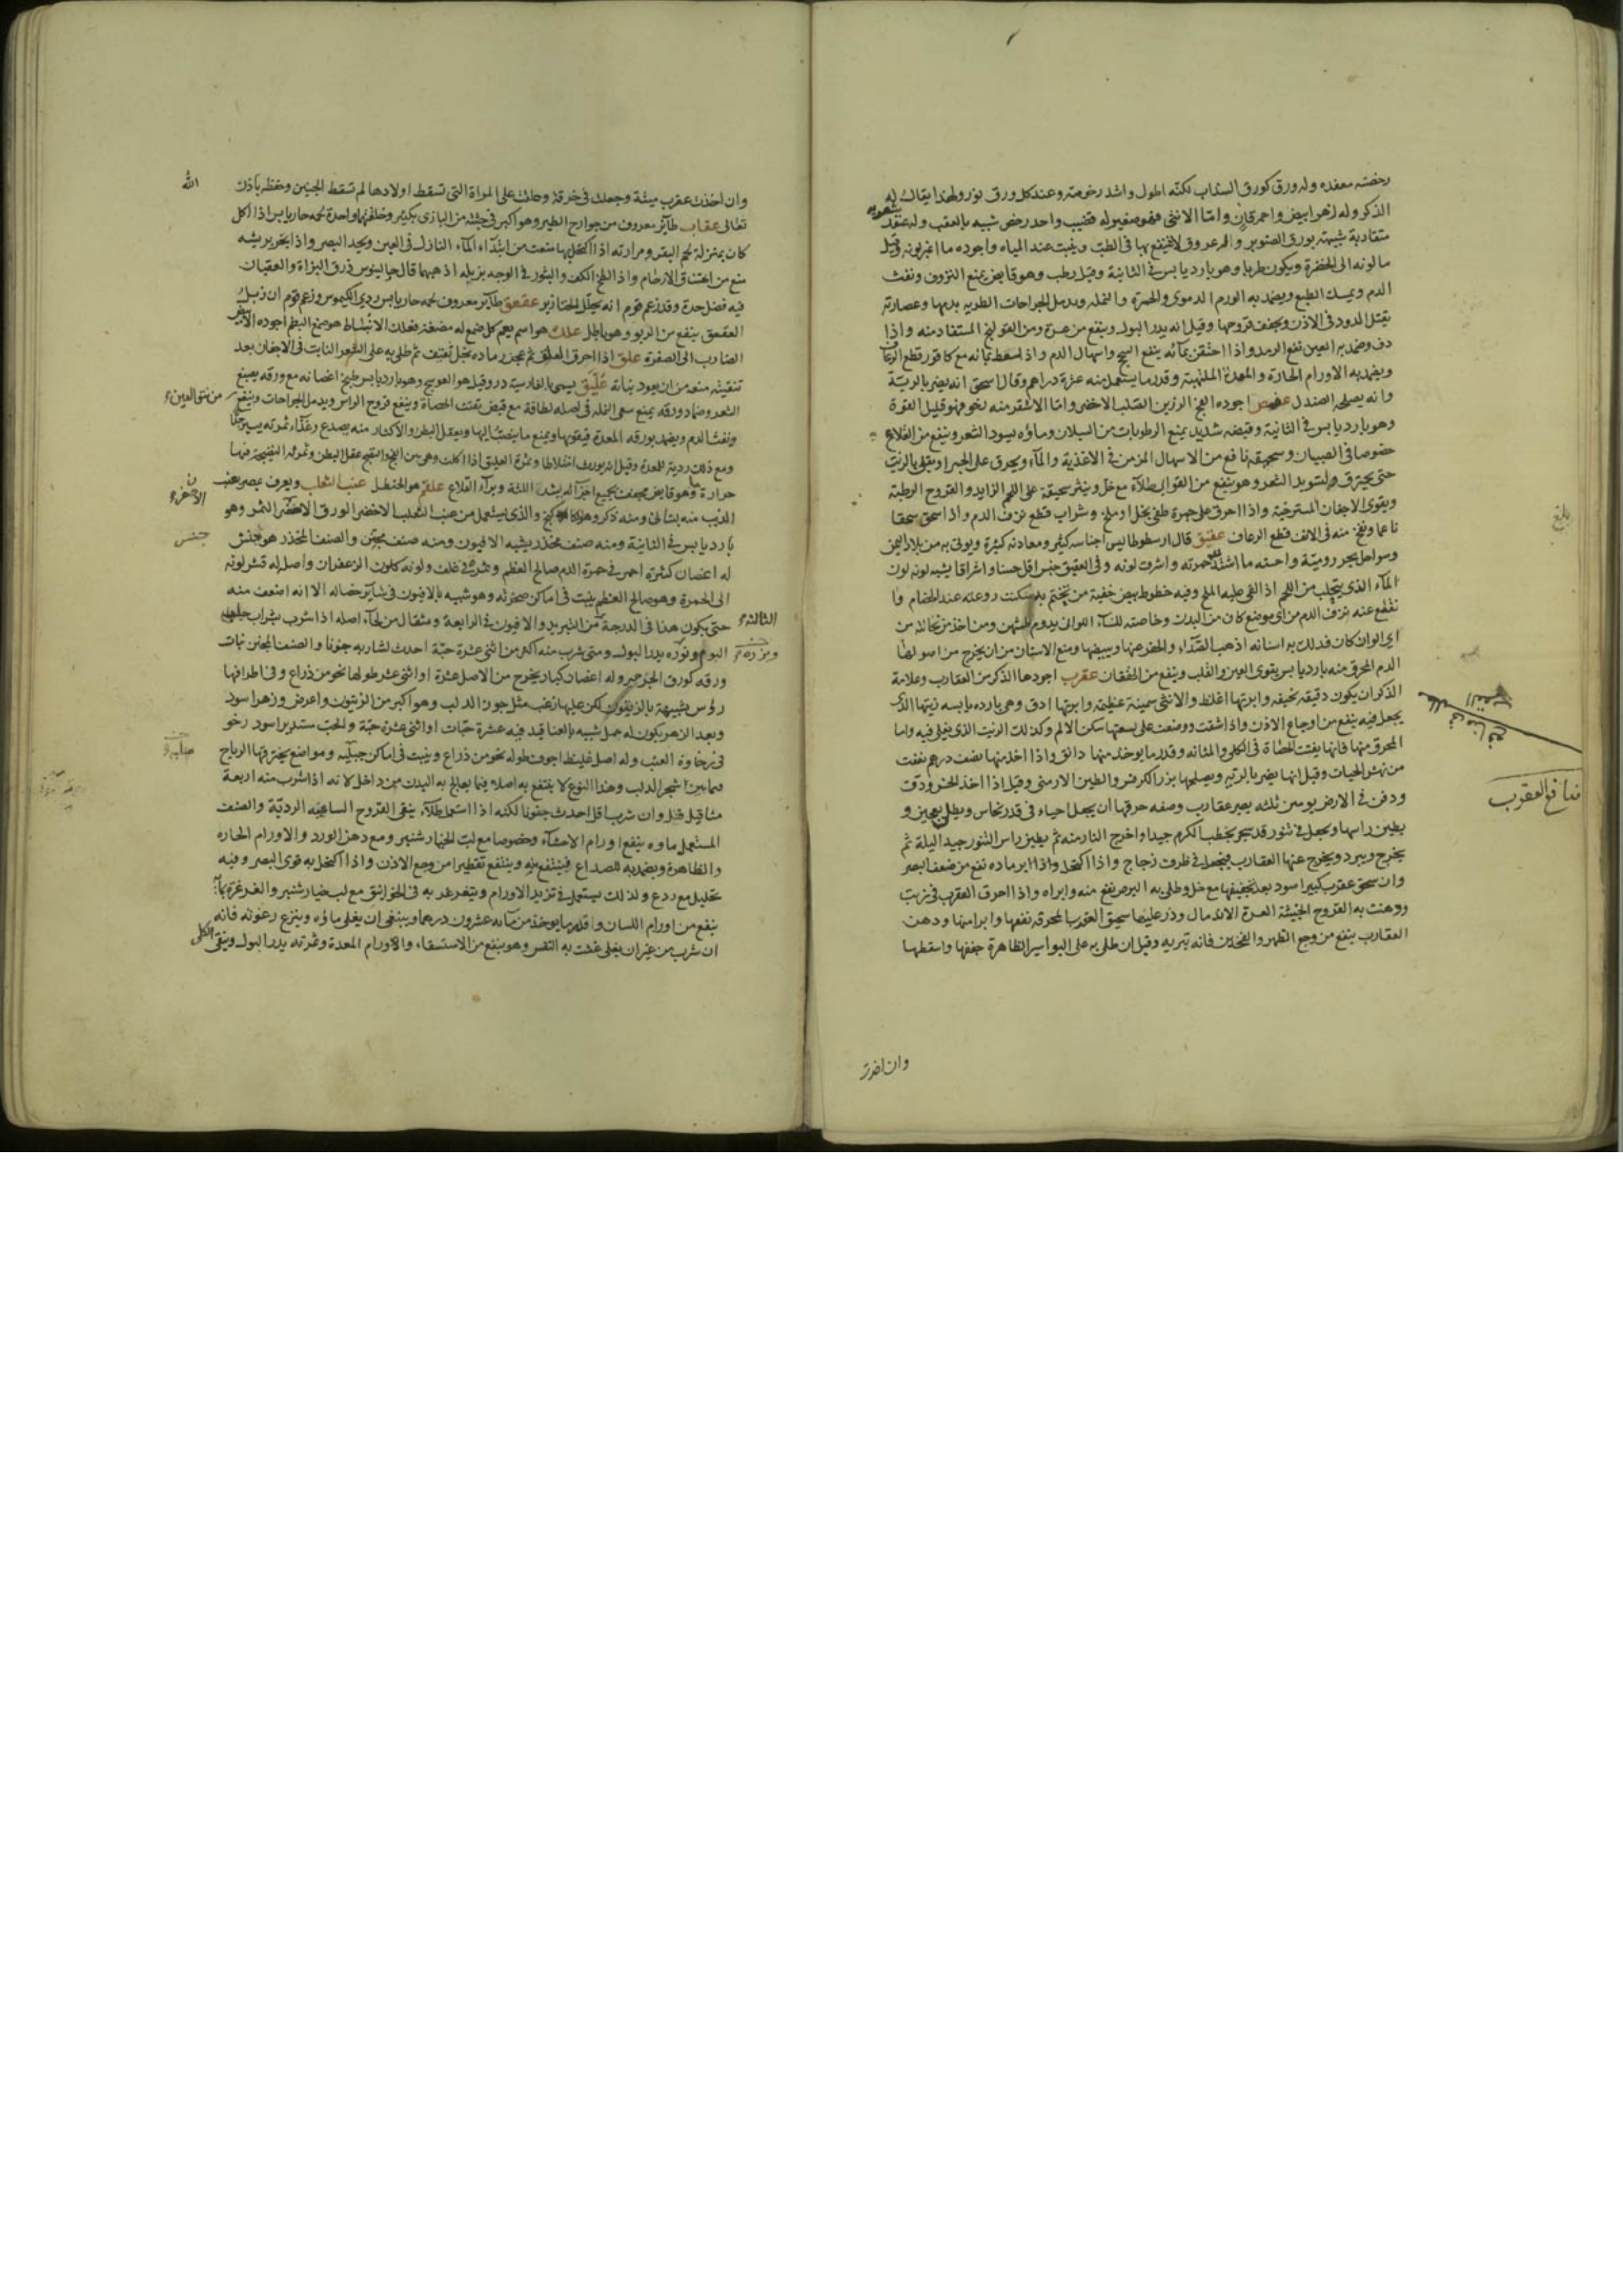 رخصة معقده وله ورق كورق السذاب لكنه اطول واشد رخومته وعند كل ورق نور ولهذا يقال له
الذكر وله زهر ابيض واحمر قان واما الانثى فهو صغير له قضيب واحد رخص شبيه بالعقب وله عقد
متقاربة شبيهة بورق الصنوبر وله عروق لا ينتفع بها في الطب وينبت عند المياه واجوده ما اغبر لونه وقيل
ما لونه الى الخضرة ويكون طريا وهو بارد يابس في الثانية وقيل رطب وهو قابض يمنع النزوف ونفث
الدم ويمسك الطبع ويضمد به الورم الدموى والحمرة والنمله ويدمل الجراحات الطريه بدمها وعصارته
يقتل الدود في الاذن ويجفف قروحها وقيل انه يدر البول وينفع من عسرة ومن القولنج المستفاد منه واذا
دق وضمد به العين نفع الرمد واذا احتقن بمائه ينفع السحج واسهال الدم واذا سعط بمائه مع كافور قطع الرعاف
ويضمد به الاورام الحارة والمعدة الملتهبة وقدر ما يستعمل منه عشرة دراهم وقال اسحق انه يضر بالرية
وانه يصلحه الصندل عفص اجوده الفج الرزين الصلب الاخضر واما الاشقر منه نخو فهو قليل القوة
وهو بارد يابس في الثانية وقبضه شديد يمنع الرطوبات من السيلان وماؤه يسود الشعر وينفع من القلاع
خصوصا في الصبيان وسحيقه نافع من الاسهال المزمن في الاغذية والماء ويحرق على الجمر او يقلى بالزيت
حتى يحترق ولتسويد الشعر وهو ينفع من القوابى طلاء مع خل وينثر سحيقه على اللحم الزايد والقروح الرطبة
ويقوى الاجفان المسترخية واذا احرق على جمرة طفى بخل او ملح وشراب قطع نزف الدم واذا سحق سحقا
ناعما ونفخ منه في الانف قطع الرعاف عقيق قال ارسطوطاليس اجناسه كثير ومعادنه كثيرة ويوتى به من بلاد اليمن
وسواحل بحر رومية واحسنه ما اشتد حمرته واشرق لونه وفي العقيق جنس اقل حسنا واشراقا يشبه لونه لون
الماء الذى يتحلب من اللحم اذا القى عليه الملح وفيه خطوط بيض خفية من تختم به سكنت روعته عند الخصام وا
نقطع عنه نزف الدم من اى موضع كان من البدن وخاصته للنساء اللواتى يدوم طمثهن ومن اخذ من نحاتته من
اى لون كان فدلك به اسنانه اذهب الصداء والحفر عنها ويبيضها ومنع الاسنان من ان يخرج من اصولها
الدم المحرق منه بارد يابس يقوى العين والقلب وينفع من الخفقان عقرب اجودها الذكر من العقارب وعلامة
الذكر ان يكون دقيقه نحيفه وابرتها اغلظ والانثى سمينة عظيمة وابرتها ادق وهى بارده يابسه زيتها الذى
يجعل فيه ينفع من اوجاع الاذن واذا شقت ووضعت على لسعتها سكن الالم وكذلك الزيت الذى يغلى فيه واما
المحرق منها فانها يفتت الحصاة في الكلى والمثانه وقدر ما يوخذ منها دانق واذا اخذ منها نصف درهم نفعت
من نهش الحيات وقيل انها يضر بالرئة ويصلحها بزر الكرفس والطين الارمنى وقيل اذا اخذ الخنز ودق
ودفن في الارض يوسن ثلثه يصير عقارب وصفه حرقها ان يجعل احياء في قدر نحاس ويطلى بعجين و
يطين راسها ويجعل في تنور قد سجر بحطب الكرم جيدا واخرج النار منه ثم يطين راس التنور جيدا ليلة ثم
يخرج ويبرد ويخرج عنها العقارب فيجعل في ظرف زجاج واذا اكتحل واذا ابر ماده نفع من ضعف البصر
وان سحق عقرب كبير اسود بعد تجفيفها مع خل وطلى به البرص نفع منه وابراه واذا احرق العقرب في زيت
ودهنت به القروح الخبيثة العسرة الاندمال وذر عليها سحيق العقرب المحرقه نفعها وابراها ودهن
العقارب ينفع من وجع الظهر والفخذين فانه تبريه وقيل ان طلى به على البواسير الظاهرة جففها واسقطها
وان اخذت
بلغ
منافع العقرب
وان اخذت عقرب ميتة وجعلت في خرقة وعلقت على المراة التى تسقط اولادها لم تسقط الجنين وحفظه باذن الله
تعالى عقاب طاير معروف من جوارح الطير وهو اكبر في جثته من البازى بكثير وخلقتهما واحدة لحمه حار يابس اذا اكل
كان بمنزلة لحم البقر ومرارته اذا اكتحل بها منعت من ابتداء الماء النازل في العين ويحد البصر واذا بخر بريشه
منع من اختناق الارحام واذا لطخ الكلف والبثور في الوجه بزبله اذهبهما قال جالينوس ذرق البزاة والعقبان
فيه فضل حدة وقد زعم قوم انه يحلل الخنازير عقعق طاير معروف لحمه حار يابس ردى الكيموس وزعم قوم ان زبل
العقعق ينفع من الربو وهو باطل علك هو اسم يعم كل صمغ له مضغة فعلك الانباط هو صمغ البطم اجوده الابيض
الضارب الى الصفرة علق اذا احرق العلق ثم عجن رماده بخل ثقيف ثم طلى به على الشعر النابت في الاجفان بعد
تنقيته منعه من ان يعود نباته عليق يسمى بالفارسية در وقيل هو العوسج وهو بارد يابس طبيخ اغصانه مع ورقه يصبغ
الشعر وضماد ورقه يمنع سعى النمله في اصله لطافة مع قبض يفتت الحصاة وينفع قروح الراس ويدمل الجراحات وينفع من نتو العين
ونفث الدم ويضمد بورقه المعدة فيقويها ويمنع ما ينصب اليها ويعقل البطن والاكثار منه يصدع وغذاء ثمرته يسير جدا
ومع ذلك ردية للمعدة وقيل انه يورث اختلاطا وثمرة العليق اذا اكلت وهى بين الفج والنضيج عقل البطن وثمرته النضيجة فيها
حرارة ما وهو قابض مجفف بجميع اجزائه يشد اللثة ويبراء القلاع علقم هو الحنظل عنب الثعلب ويعرف بعصر بعنب
الذيب منه بستانى ومنه ذكر وهو الكاكنج والذى يستعمل من عنب الثعلب الاخضر الورق الاصفر الثمر وهو
بارد يابس في الثانية ومنه صنف مخدر يشبه الافيون ومنه صنف مجنن والصنف المخدر هو تجنش
له اغصان كثيرة احمر في حمرة الدم صالح العظم وثمره في غلف ولونه كلون الزعفران واصل له قشر لونه
الى الحمرة وهو صالح العظم ينبت في اماكن صخرية وهو شبيه بالافيون في ساير خصاله الا انه اضعف منه
حتى يكون هذا في الدرجة الثالثة من التبريد والافيون في الرابعة ومثقال من لحاء اصله اذا شرب بشراب جلب
النوم وبزره يدر البول ومتى شرب منه اكثر من اثنى عشرة حبة احدث لشاربه جنونا والصنف المجنن نبات
ورقه كورق الجرجير وله اغصان كبار يخرج من الاصل عشرة او اثنى عشر طولها نحو من ذراع وفي اطرافها
روس شبيهة بالزيتون لكن عليها زغب مثل جوز الدلب وهو اكبر من الزيتون واعرض وزهر اسود
وبعد الزهر يكون له حمل شبيه بالعناقيد فيه عشرة حبات او اثنى عشرة حبة والحب مستدير اسود رخو
في رخاوة العنب وله اصل غليظ اجوف طوله نحو من ذراع وينبت في اماكن جبليه ومواضع يخترقها الرياح
فيما بين شجر الدلب وهذا النوع لا ينتفع به اصلا فيما يعالج به البدن من داخل لانه اذا شرب منه اربعة
مثاقيل قتل وان شرب اقل احدث جنونا لكنه اذا استعمل طلاء ينقى القروح الساعيه الرديه والصنف
المستعمل ماوه ينفع اورام الاحشاء وخصوصا مع لب الخيارشنبر ومع دهن الورد والاورام الحاره
والظاهرة ويضمد به للصداع فينتفع به وينتفع تقطيرا من وجع الاذن واذا اكتحل به قوى البصر وفيه
تحليل مع ردع ولذلك يستعمل في تزيد الاورام ويتغرغر به في الخوانيق مع لب خيارشنبر والغرغرة بمائه
ينفع من اورام اللسان واقله ما يوخذ من مايه عشرون درهما وينبغى ان يغلى ماؤه وينزع رغوته فانه
ان شرب من غير ان يغلى غثت به النفس وهو ينفع من الاستسقاء والاورام المعدة وثمرته يدر البول وينقى الكلى